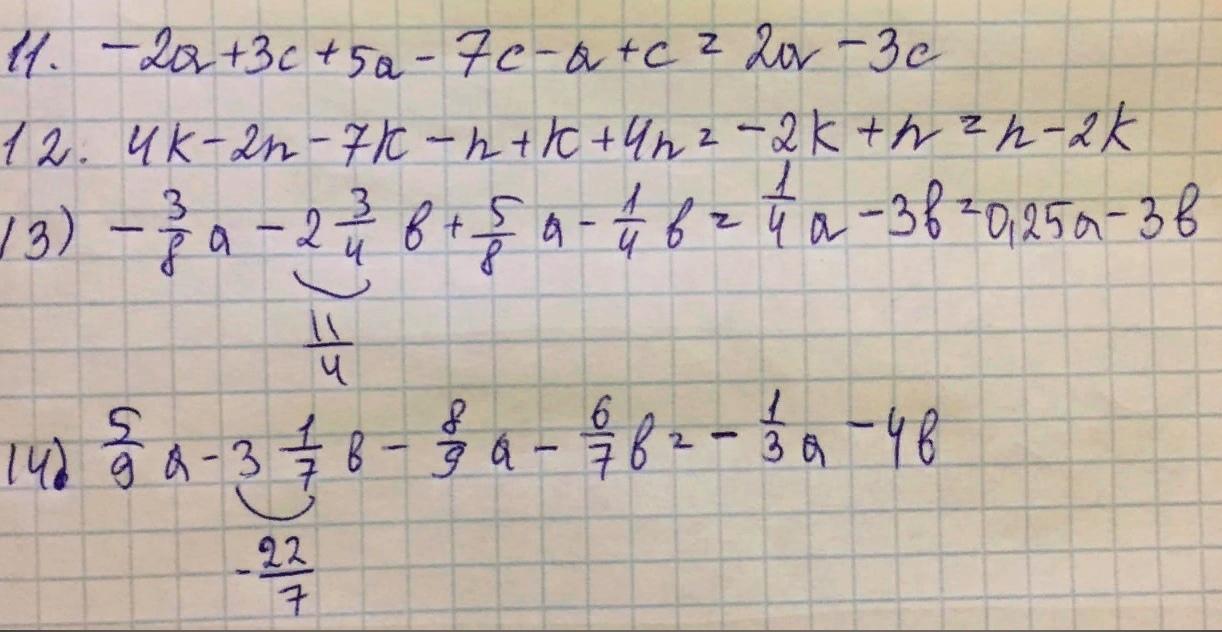 11. -2a+3c+5a-7c-a+c=2a-3c
12. 4k-2n-7k-n+k+4n=-2k+n=n-2k
13) -3/8 a - 2 3/4 в + 5/8 a - 1/4 в = 1/4 a - 3в = 0,25a - 3в
11/4
14. 5/9 a - 3 1/7 в - 8/9 a - 6/7 в = - 1/3 a - 4в
-22/7